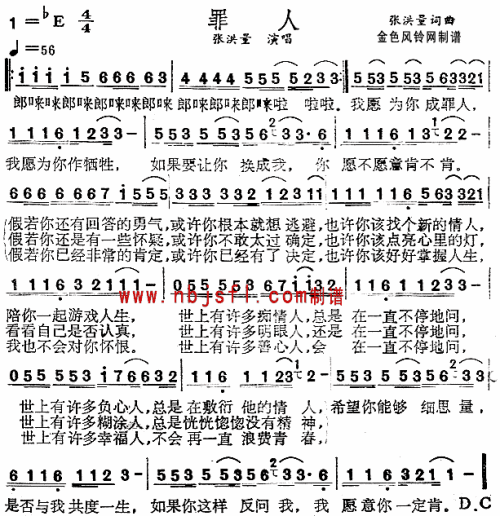 罪 人
1=♭E 4/4
张洪量 词曲
♩=56
张洪量 演唱
金色风铃网制谱
i i i i i 5 6 6 6 6 3 4 4 4 4 5 5 5 5 2 3 3 5 5 3 5 5 3 5 6 3 3 2 1
郎啝来郎啝来郎啝来郎啝来郎啝来啦 啦啦。我愿 为你 成罪人,
1 1 1 6 1 2 3 3 - 5 5 3 5 5 3 5 6 2 3 3·6 1 1 1 1·3 2 2 -
我愿为你作牺牲, 如果要让你 换成我, 你 愿不愿意肯不肯。
6 6 6 6 6 6 6 7 i 5 5 5 3 3 3 3 3 2 1 2 3 3 0 1 1 1 1 1 1 6 5 6 3 3 2 1
假若你还有回答的勇气,或许你根本就想 逃避,也许你该找个新的情人,
假若你还是有一些怀疑,或许你不敢太过 确定,也许你该点亮心里的灯,
假若你已经非常的肯定,或许你已经有了 决定,也许你该好好掌握人生,
1 1 1 6 1 6 3 2 1 1 1 - 0 5 5 5 5 3 6 7 i i 3 2 1 1 1 6 1 1 2 3 -
www.nbjsfl.com制谱
陪你一起游戏人生, 世上有许多痴情人,总是 在一直不停地问,
看看自己是否认真, 世上有许多明眼人,还是 在一直不停地问,
我也不会对你怀恨。 世上有许多善心人,会 在一直不停地问,
0 5 5 5 5 3 i 7 6 6 3 2 1 1 6 1 1 2 3 · 1 5 5 3 5 5 3 5 6 6 -
世上有许多负心人,总是在敷衍 他的情 人,希望你能够 细思 量,
世上有许多糊涂人,总是恍恍惚惚没有精 神,
世上有许多幸福人,不会 再一直 浪费青 春,
6 1 1 6 1 1 2 3 5 5 3 5 5 3 5 6 2 3 3·6 1 1 6 1 1 1 -
是否与我 共度一生, 如果你这样 反问 我, 我 愿意你一定肯。D.C